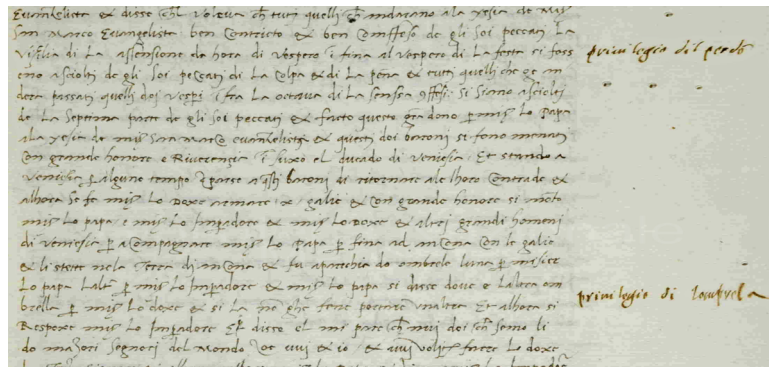 Evangelista & disse chel voleva che tuti quelli che andarano ala xesia de mis
San Marco Evangelista ben contricto & ben confesso de gli soi peccati La
Vigilia di La assensione da hora di Vespero i fina al Vespero di La festa si foss
eno asciolti de gli soi peccati di La colpa & di La pena & tutti quelli che ge an
dera passati quelli doi vespi i fra La octava di La sensa si siano asciolti
de La septima parte de gli soi peccati & facto questo gra dono p mis Lo Papa
ala xesia de mis San Marco evangelista & questi doi baroni si fono menati
con grande honore e Riverencia i suxo el ducado di venesia. Et stando a
venesia p alguno tempo parse a questi baroni di ritornare ale lhoro contrade &
alhora se fe mis Lo Doxe armare x galie & con grande honore si moto
mis Lo papa e mis Lo Imperadore & mis Lo Doxe & altri grandi homeni
di venesia p acompagnare mis Lo Papa p fina ad ancona con le galie
& listete nela Terra di ancona & fu aparechiado ombrele luna p misier
Lo papa Laltra p mis Lo Imperadore & mis Lo papa si disse dove e laltra om
brella p mis Lo doxe & si la no ghe fene portare unaltra Et alhora si
Respoxe mis Lo Imperadore & disse el me pare che nui doi semo li
do mazori segnori del Mondo zoe vui & io & vui volere farce Lo doxe
privilegio del perdo
privilegio di lombrela